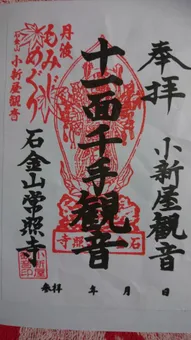 奉拝
小新屋観音
十一面千手観音
丹波
もみじ
めぐり
小新屋観音
石金山常照寺
参拝 年 月 日